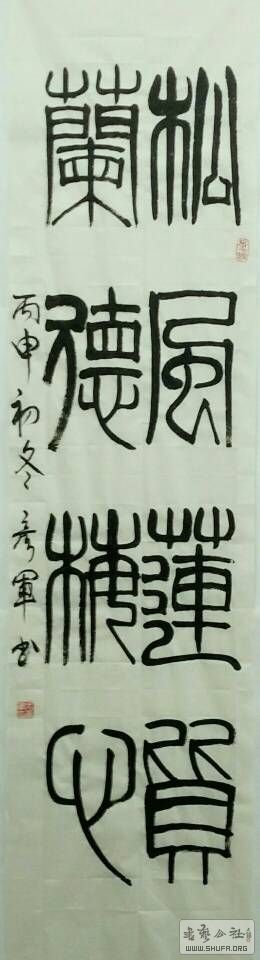 松風蓮質
蘭德梅心
丙申初冬彦軍书
书艺公社
WWW.SHUFA.ORG